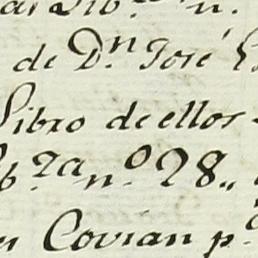 n.
de D.n José
Libro de ellos
2a n.o 28,,
Covian p.